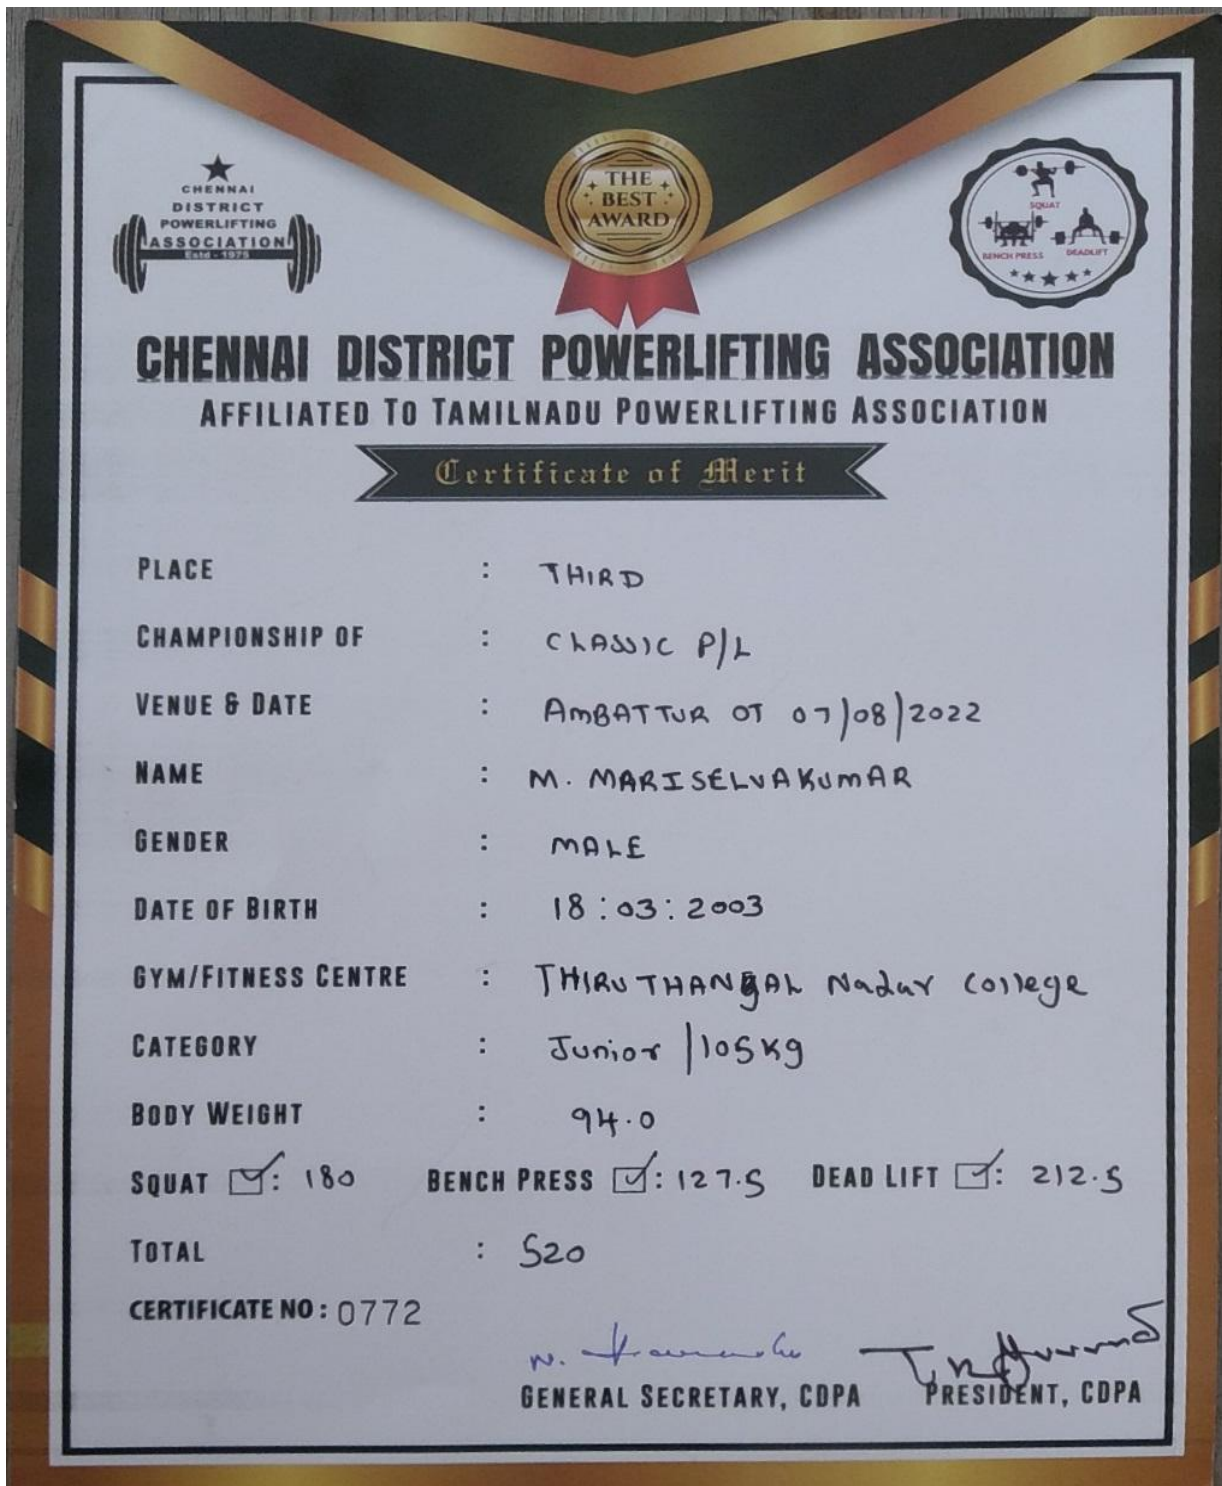 CHENNAI
DISTRICT
POWERLIFTING
ASSOCIATION
Estd - 1975
THE
BEST
AWARD
SQUAT
BENCH PRESS DEADLIFT
CHENNAI DISTRICT POWERLIFTING ASSOCIATION
AFFILIATED TO TAMILNADU POWERLIFTING ASSOCIATION
Certificate of Merit
PLACE : THIRD
CHAMPIONSHIP OF : CLASSIC P/L
VENUE & DATE : AMBATTUR OT 07/08/2022
NAME : M. MARISELVAKUMAR
GENDER : MALE
DATE OF BIRTH : 18:03:2003
GYM/FITNESS CENTRE : THIRUTHANGAL Nadar College
CATEGORY : Junior /105kg
BODY WEIGHT : 94.0
SQUAT ☑: 180 BENCH PRESS ☑: 127.5 DEAD LIFT ☑: 212.5
TOTAL : 520
CERTIFICATE NO: 0772
GENERAL SECRETARY, CDPA PRESIDENT, CDPA